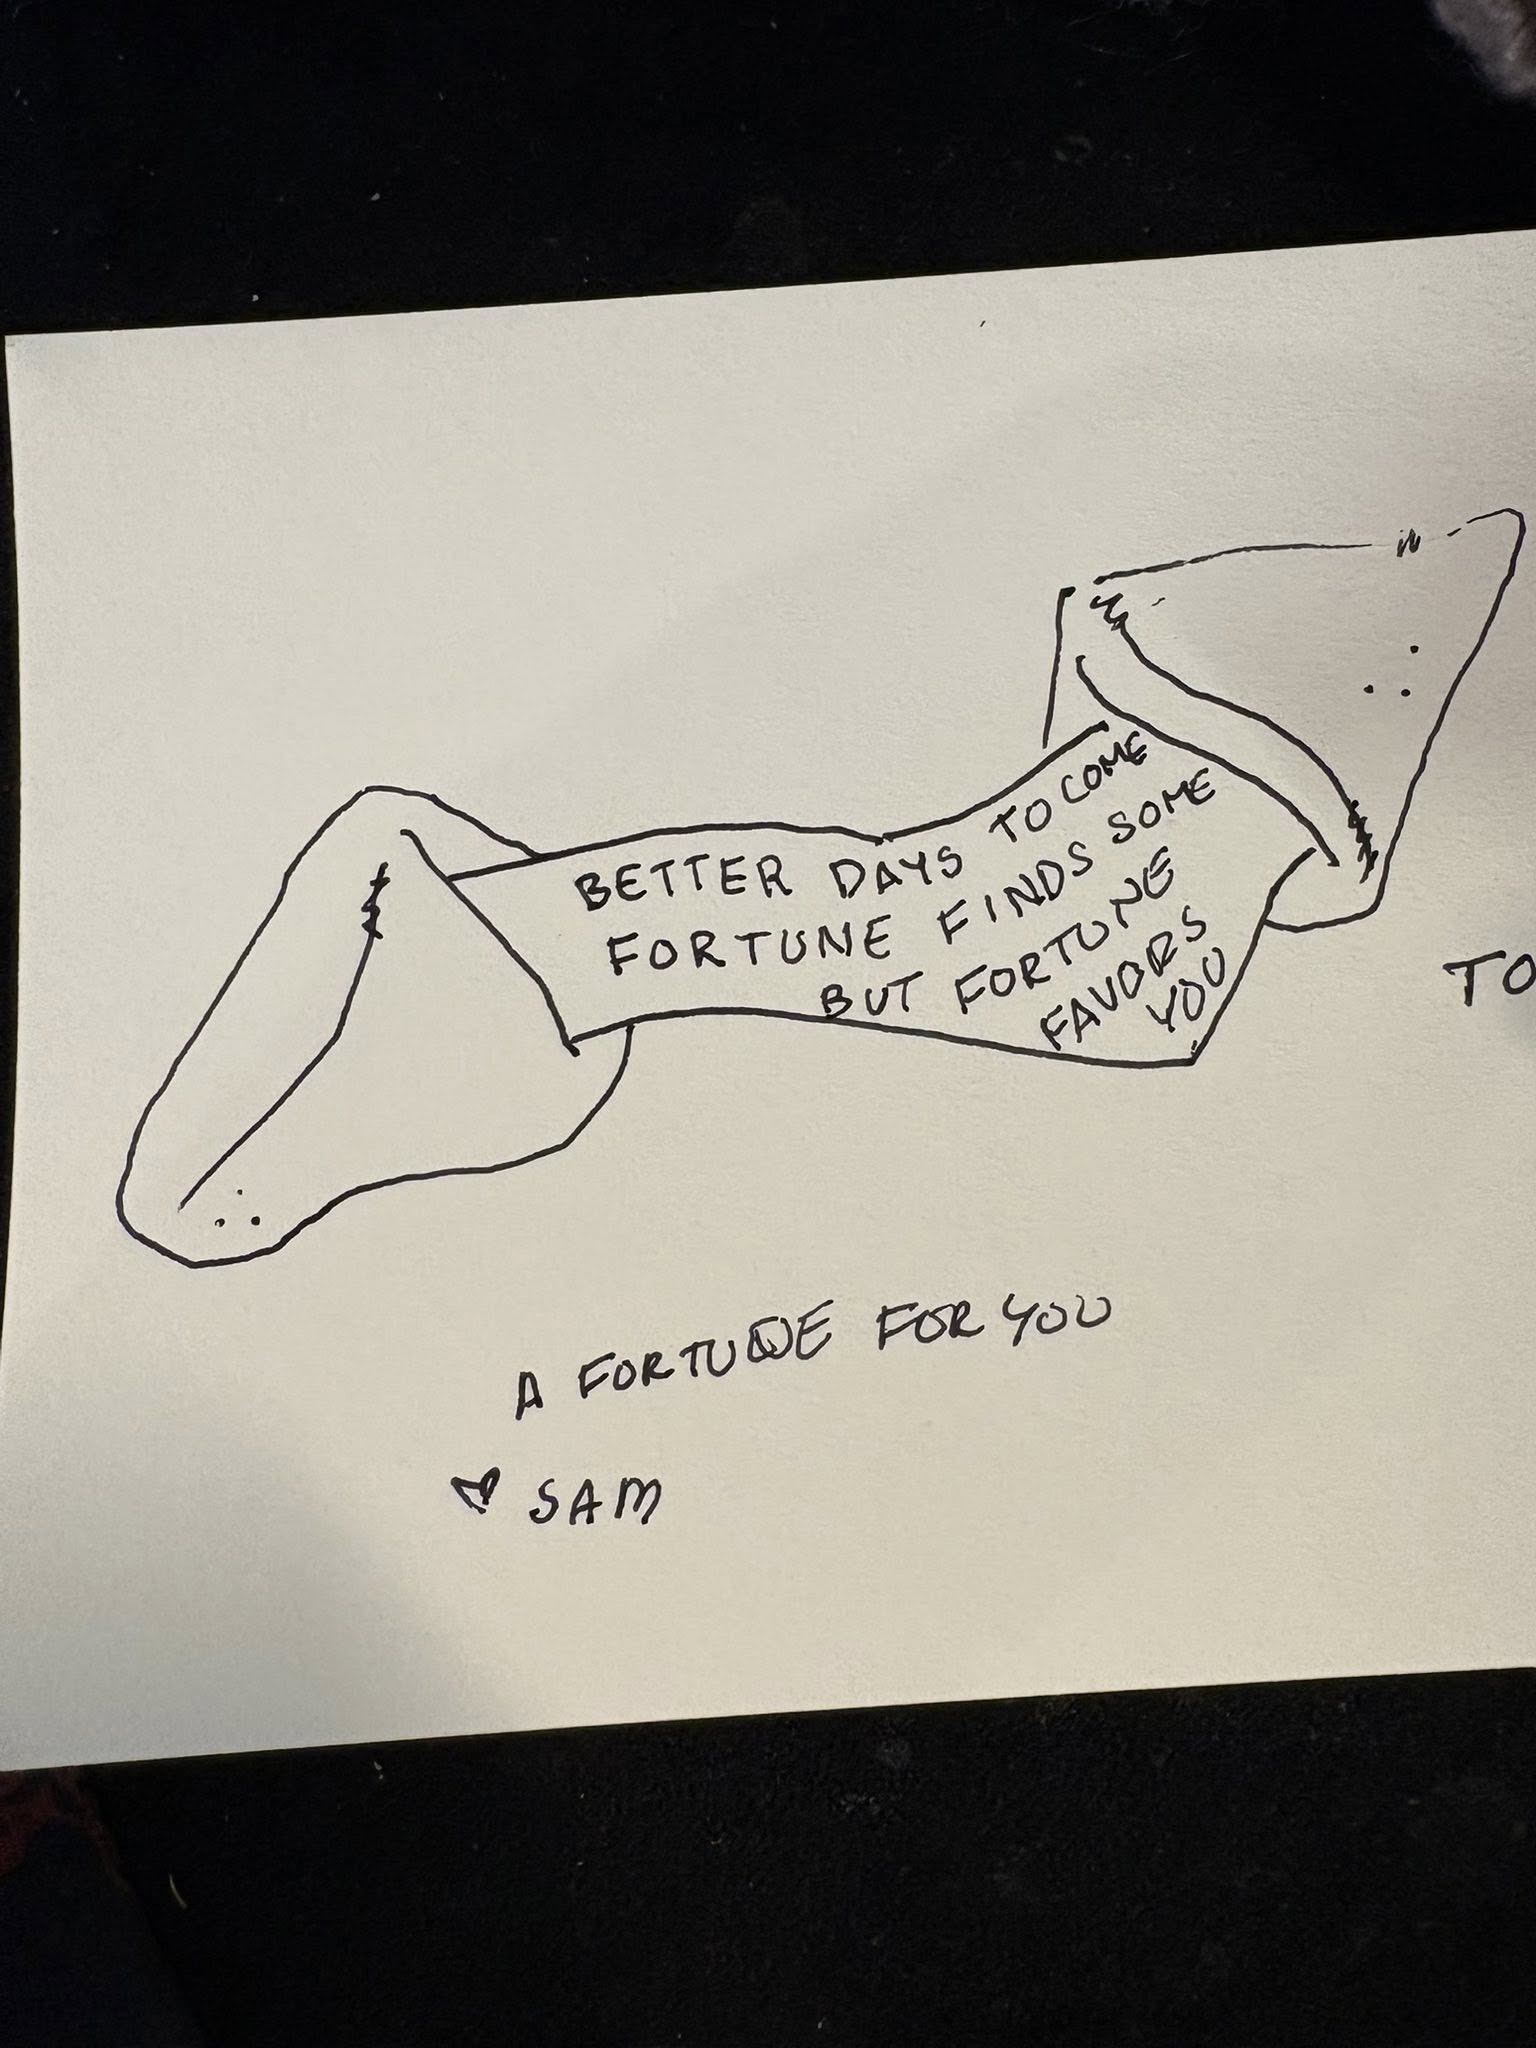 BETTER DAYS TO COME
FORTUNE FINDS SOME
BUT FORTUNE
FAVORS
YOU
TO
A FORTUNE FOR YOU
♥ SAM